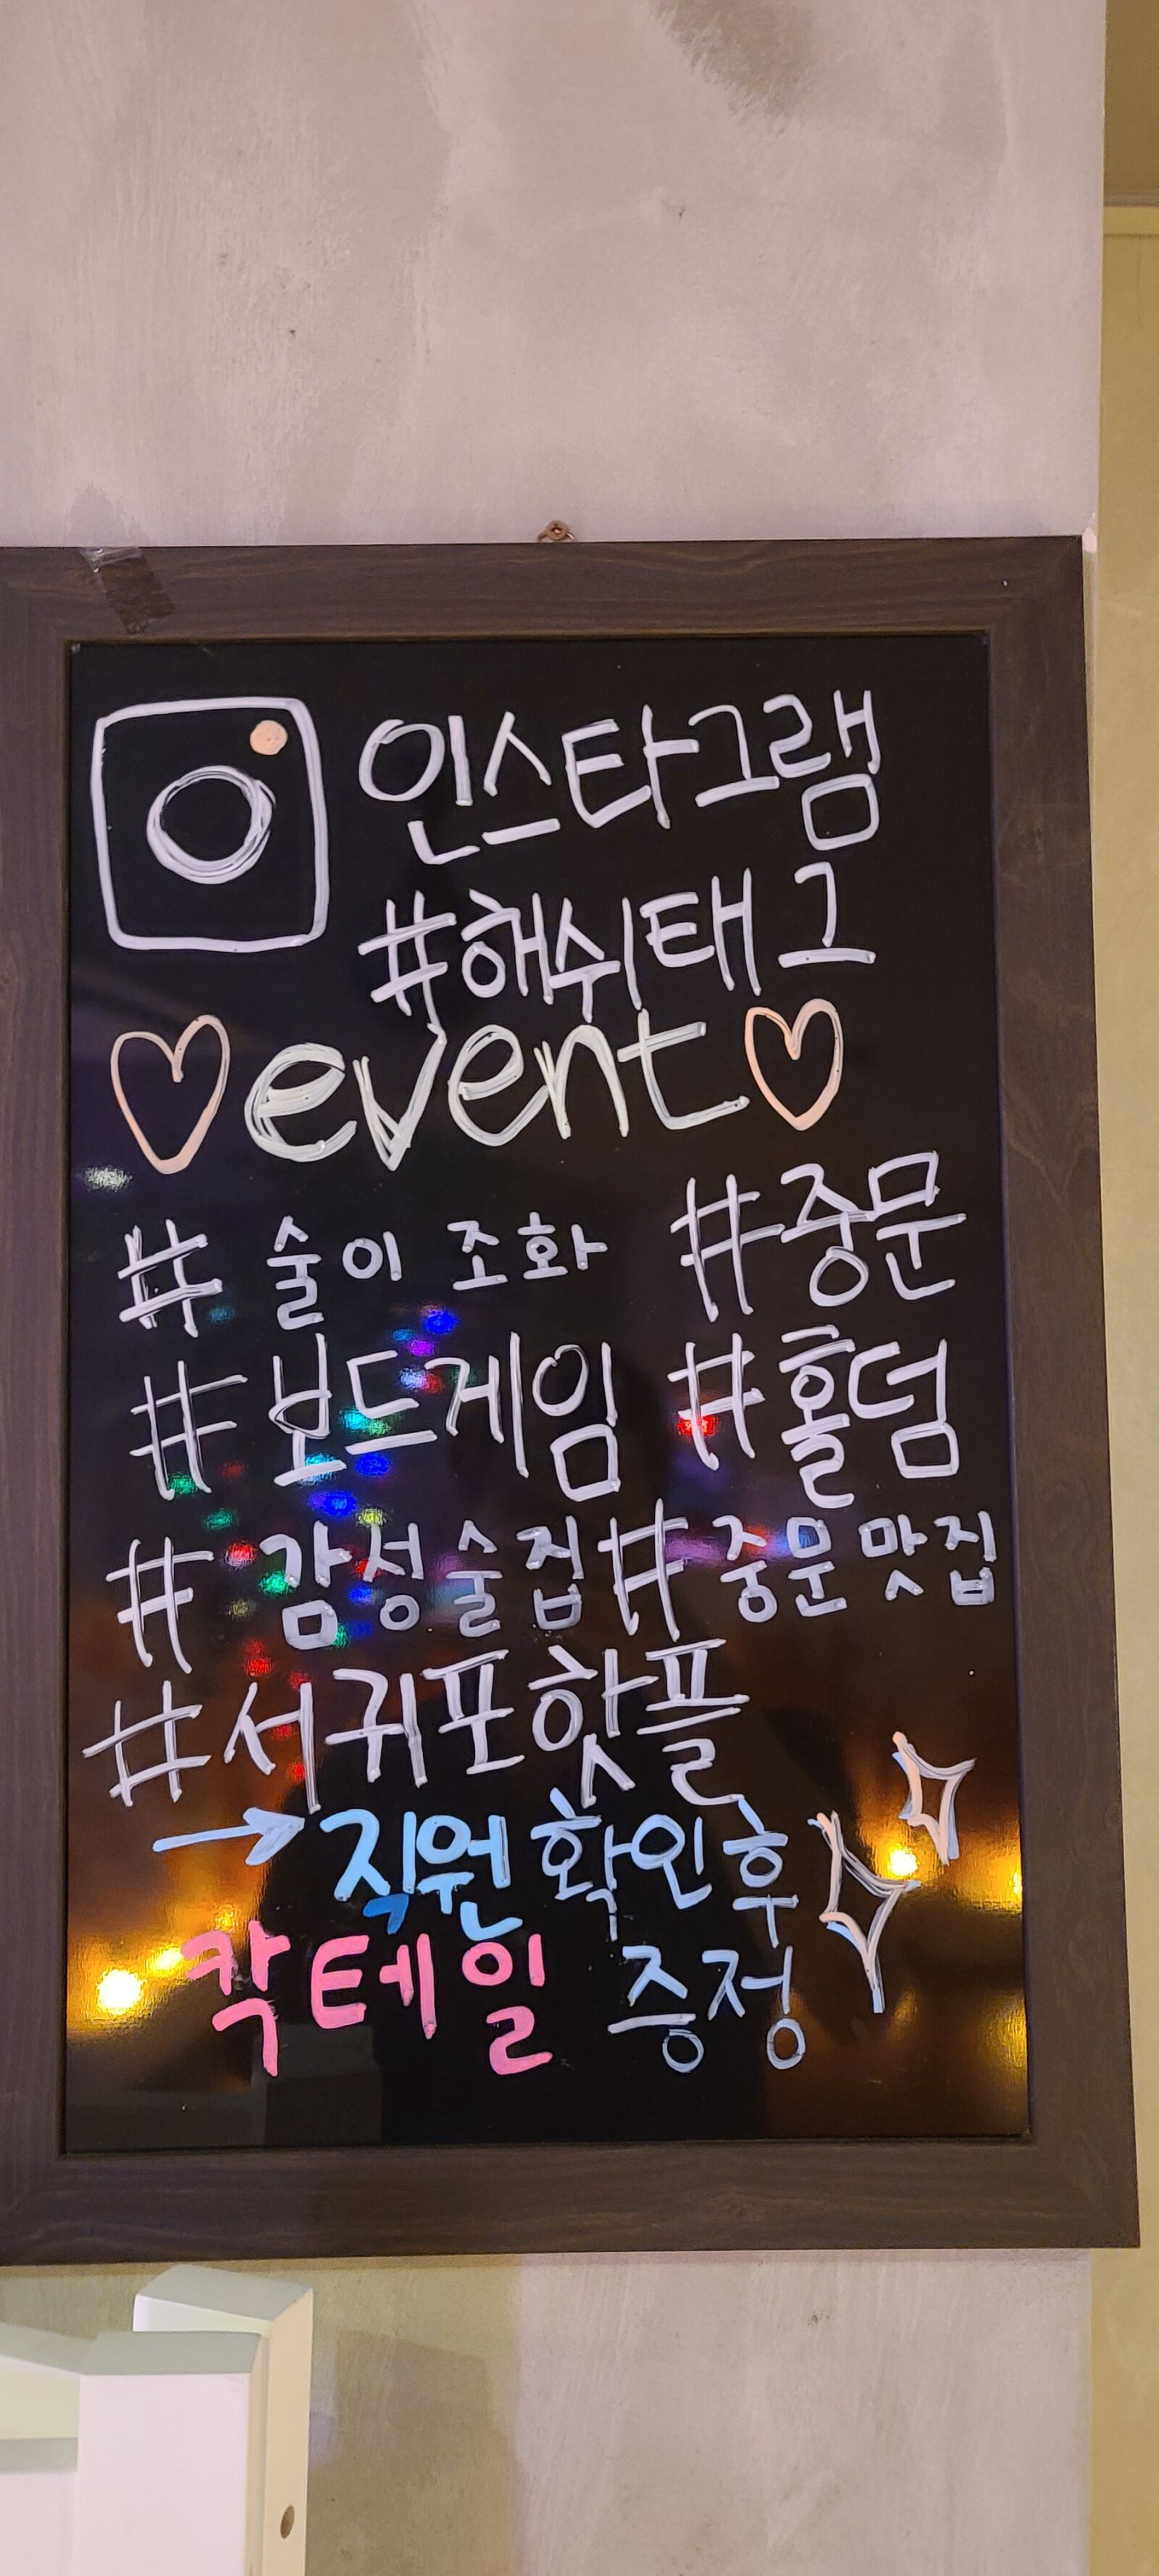 인스타그램
#해쉬태그
♡event♡
# 술이 조화 #중문
# 보드게임 #홀덤
# 감성술집 # 중문맛집
#서귀포핫플
→ 직원 확인 후
칵테일 증정